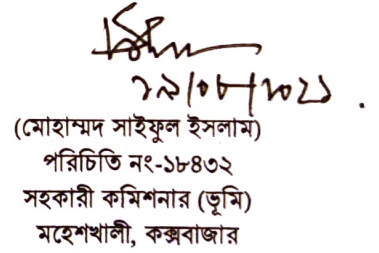 ২৯/০৮/২০২১
(মোহাম্মদ সাইফুল ইসলাম)
পরিচিতি নং-১৮৪৩২
সহকারী কমিশনার (ভূমি)
মহেশখালী, কক্সবাজার